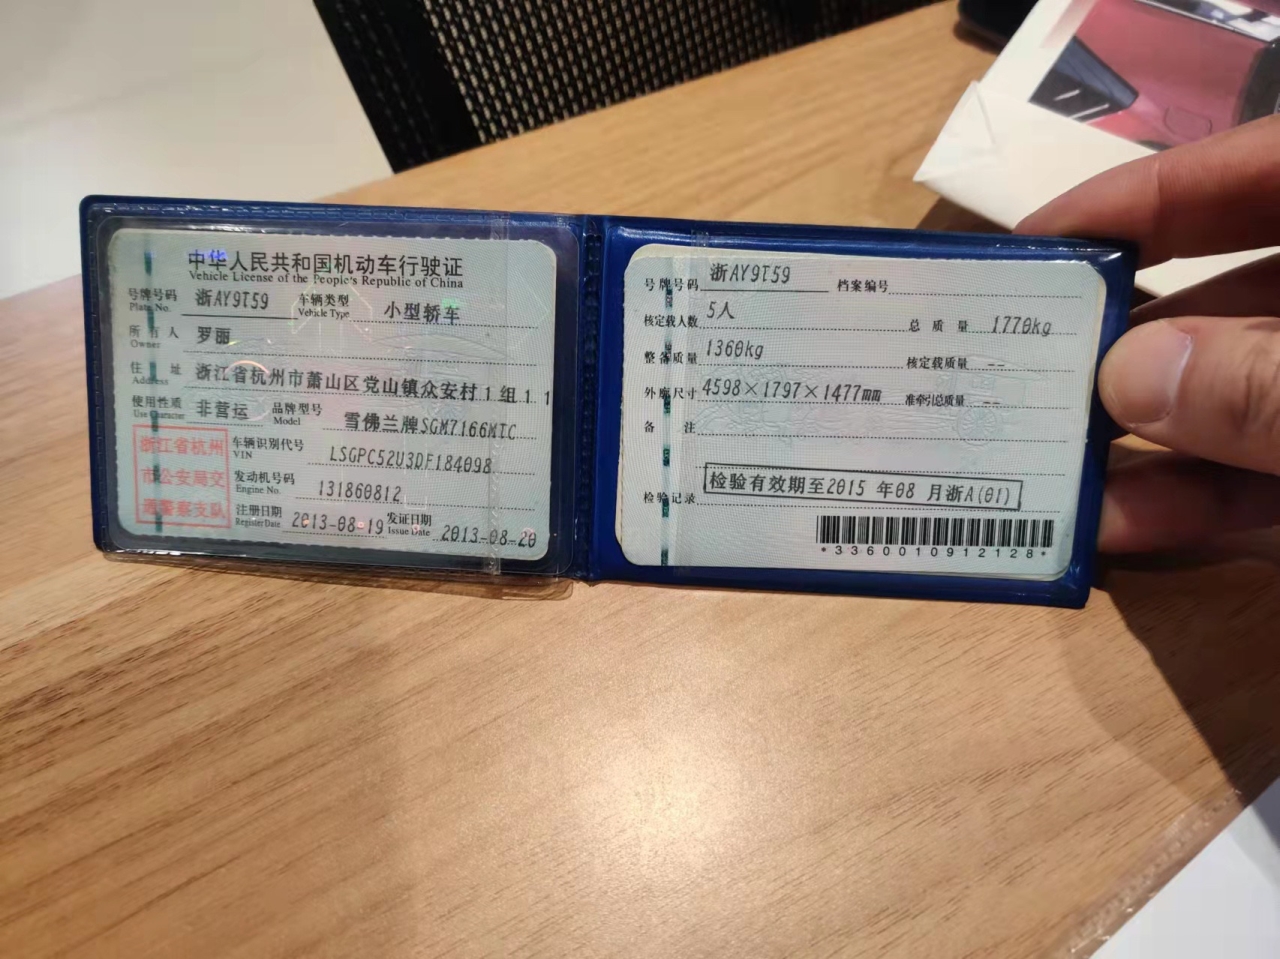 中华人民共和国机动车行驶证
Vehicle License of the People's Republic of China
号牌号码 浙AY9T59 车辆类型 小型轿车
Plate No. Vehicle Type
所有人 罗丽
Owner
住址 浙江省杭州市萧山区党山镇众安村1组1.1
Address
使用性质 非营运 品牌型号 雪佛兰牌SGM7166MTC
Use Character Model
浙江省杭州
市公安局交
通警察支队
车辆识别代号 LSGPC52U3DF184098
VIN
发动机号码 131860812
Engine No.
注册日期 2013-08-19 发证日期 2013-08-20
Register Date Issue Date
号牌号码 浙AY9T59 档案编号
核定载人数 5人 总质量 1770kg
整备质量 1360kg 核定载质量 --
外廓尺寸 4598×1797×1477mm 准牵引总质量 --
备注
检验记录 检验有效期至2015 年08 月浙A(01)
*3360010912128*